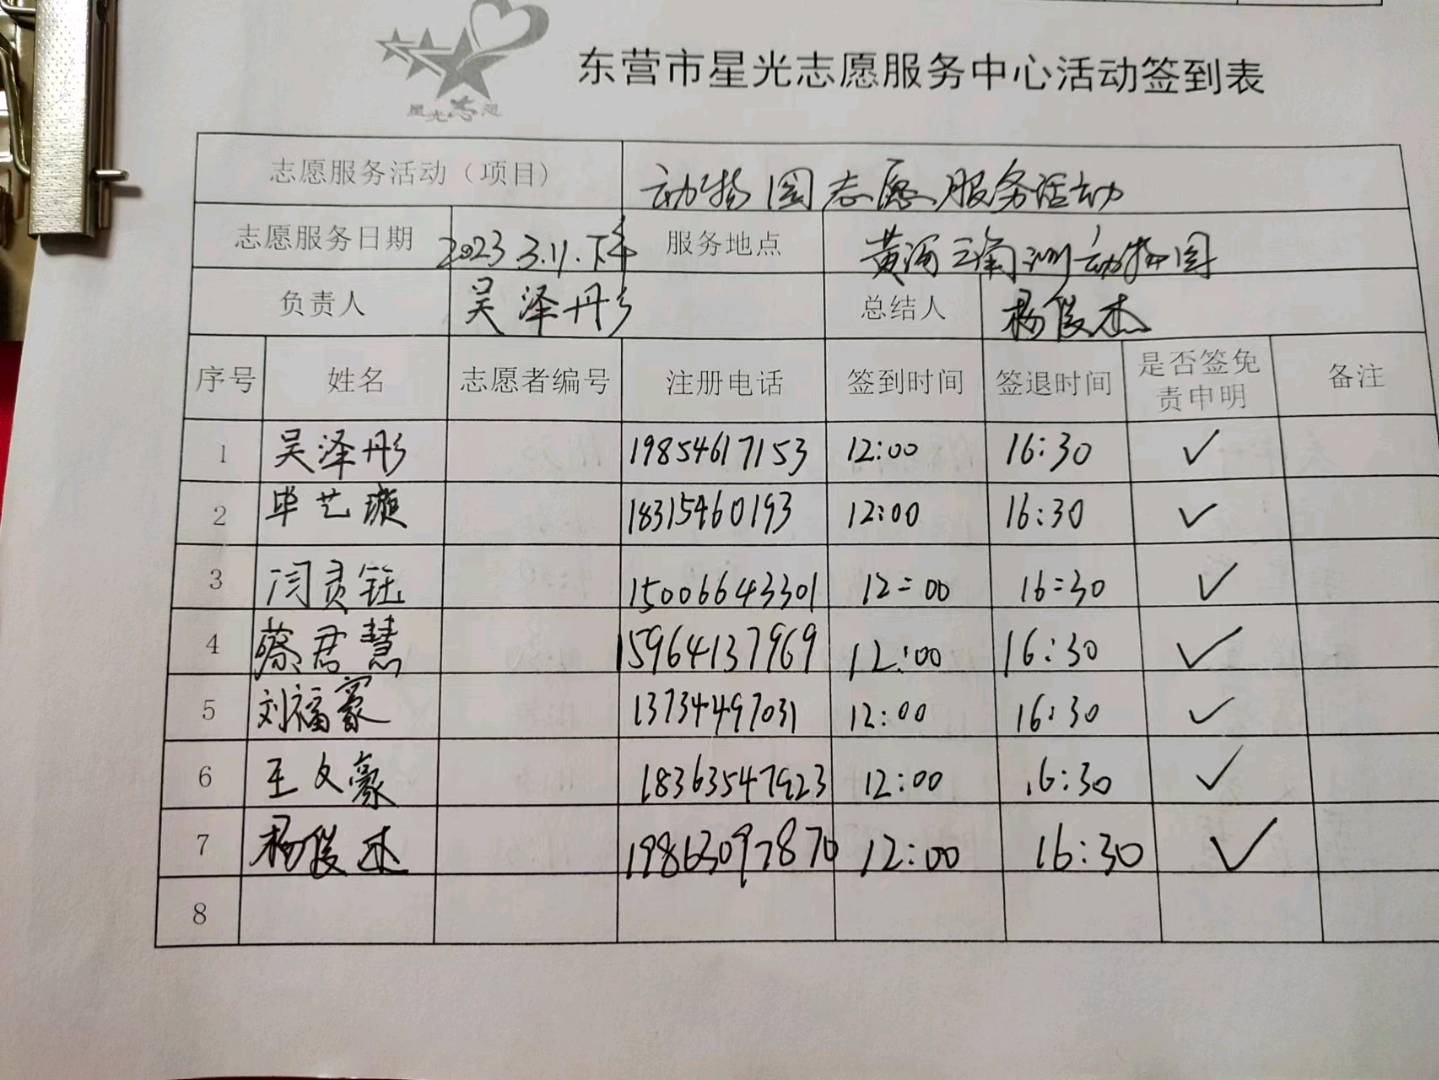 星光志愿
东营市星光志愿服务中心活动签到表
志愿服务活动（项目） 动物园志愿服务活动
志愿服务日期 2023 3.11.下午 服务地点 黄河三角洲动物园
负责人 吴泽彤 总结人 杨俊杰
序号 姓名 志愿者编号 注册电话 签到时间 签退时间 是否签免责申明 备注
1 吴泽彤 19854617153 12:00 16:30 ✓
2 毕艺璇 18315460193 12:00 16:30 ✓
3 闫灵钰 15006643301 12:00 16:30 ✓
4 蔡君慧 15964137969 12:00 16:30 ✓
5 刘福 13734497031 12:00 16:30 ✓
6 王文豪 18363547923 12:00 16:30 ✓
7 杨俊杰 19863097870 12:00 16:30 ✓
8